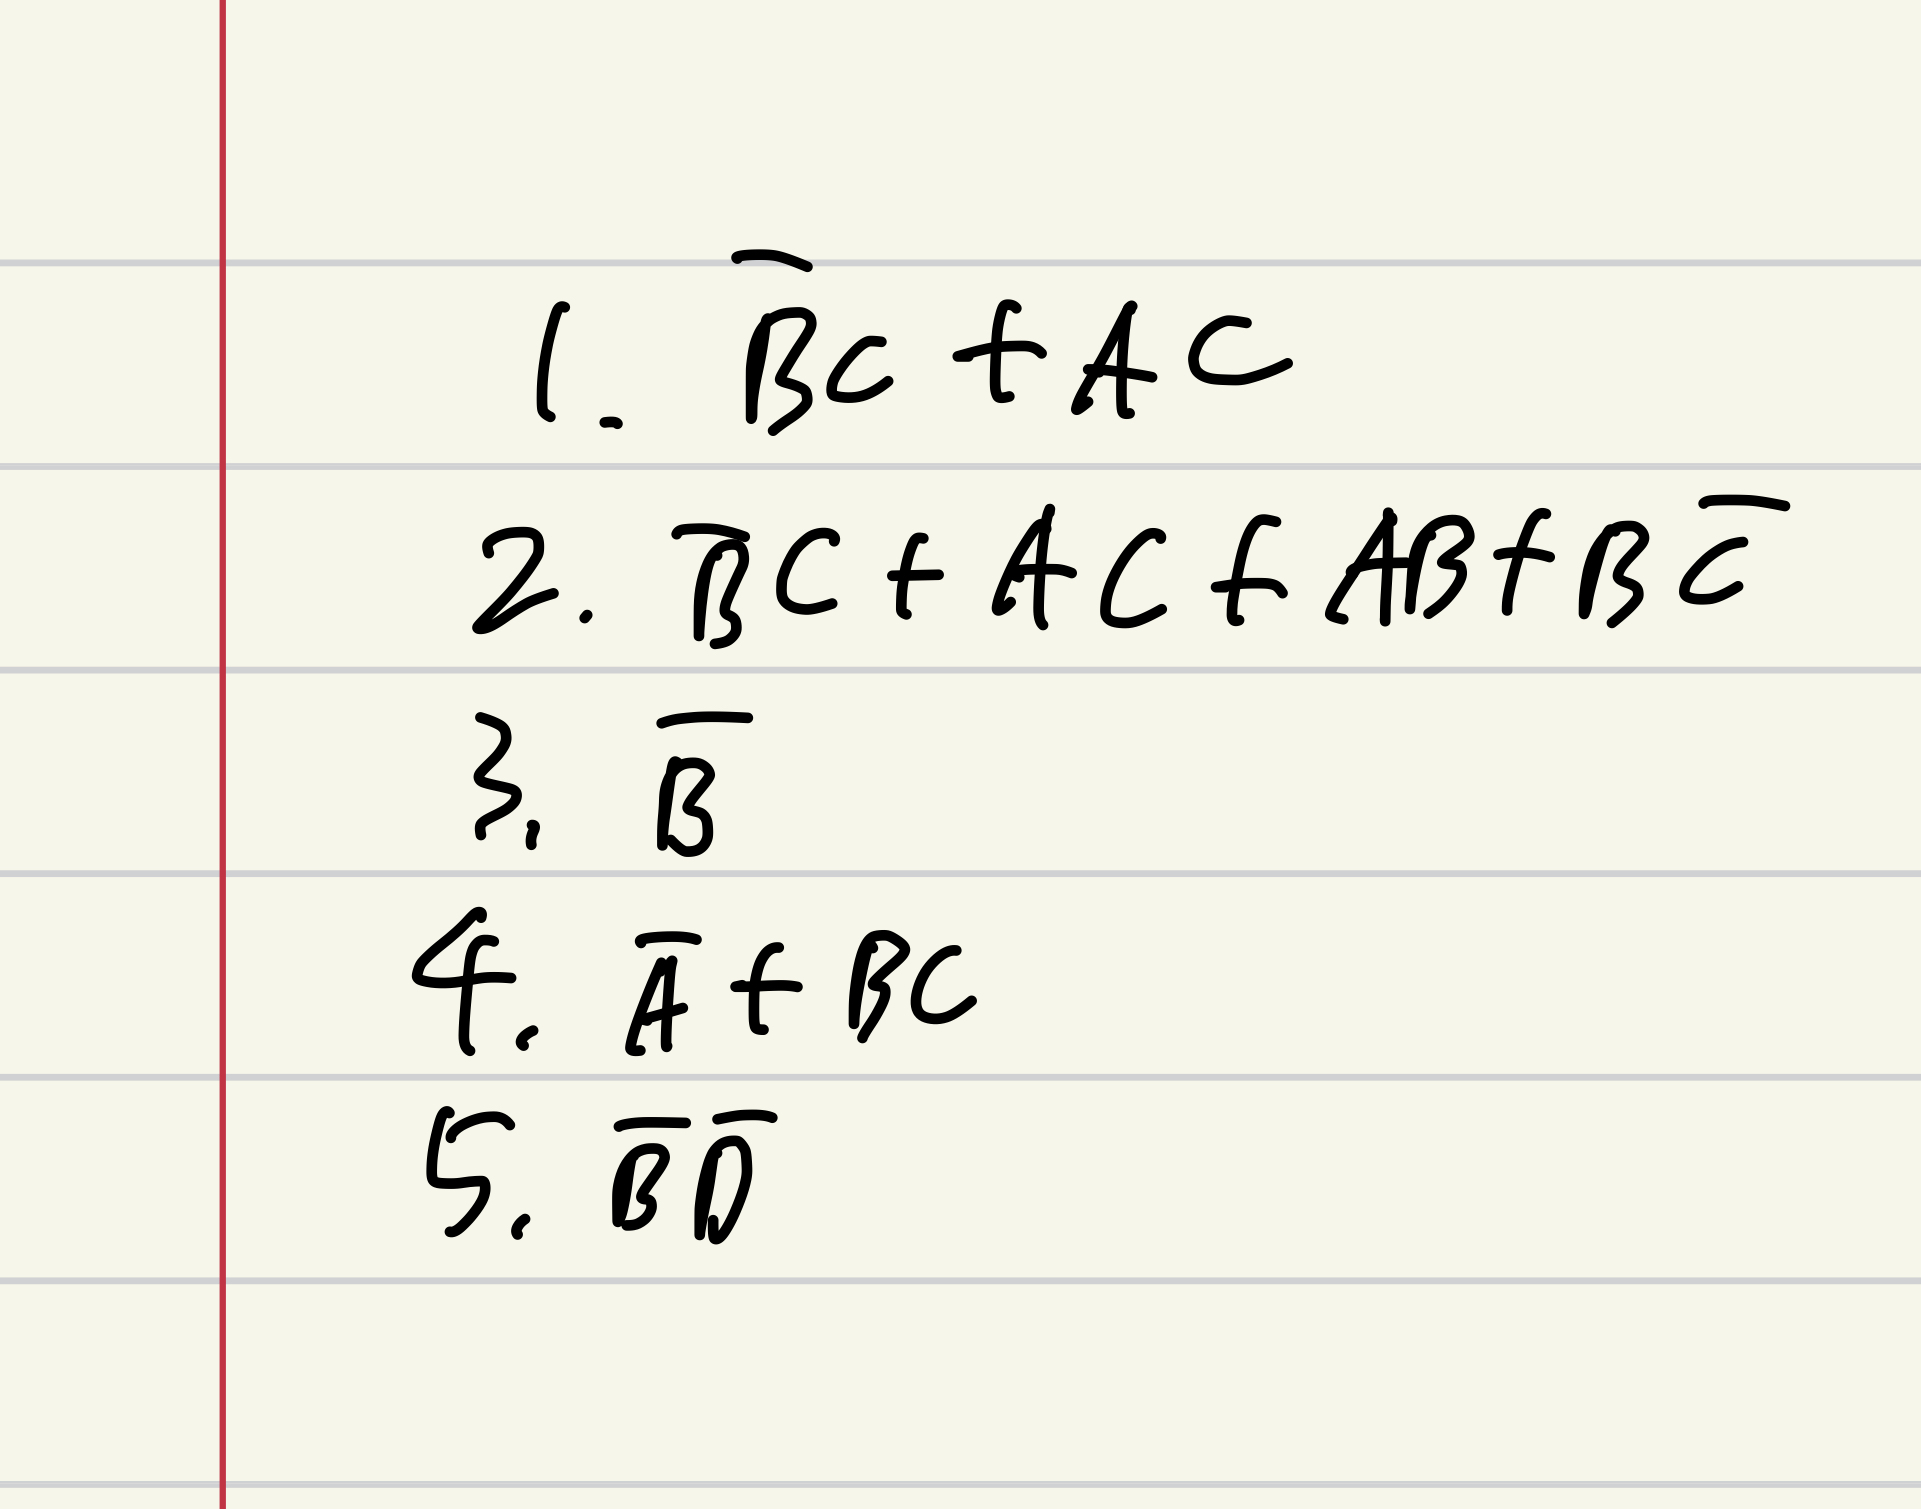 1. B̅C + AC
2. B̅C + AC + AB + BC̅
3. B̅
4. A̅ + BC
5. B̅ D̅